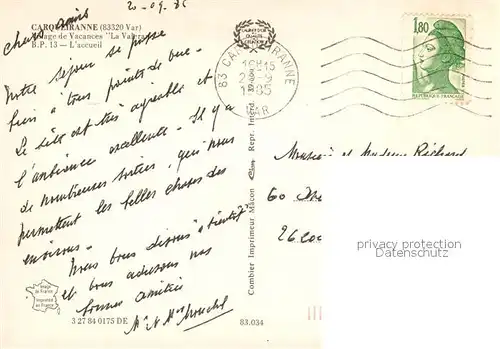 20-09-85
CARQUEIRANNE (83320 Var)
Village de Vacances "La Valérane"
B.P. 13 — L'accueil
chers amis
Notre séjour se passe
bien à tous points de vue.
Le site est très agréable et
l'ambiance excellente. Il y a
de nombreuses sorties, qui nous
permettent les belles choses des
environs.
Nous vous disons "à bientôt"
et vous adressons nos
bonnes amitiés
Mr & Mme
image de France
imprimé en France
3 27 84 0175 DE
83.034
Combier Imprimeur Mâcon Cim Repr. Interd.
83 CARQUEIRANNE
16H15
-9
1985
VAR
1,80
REPUBLIQUE FRANCAISE
Monsieur et Madame Richard
60
privacy protection